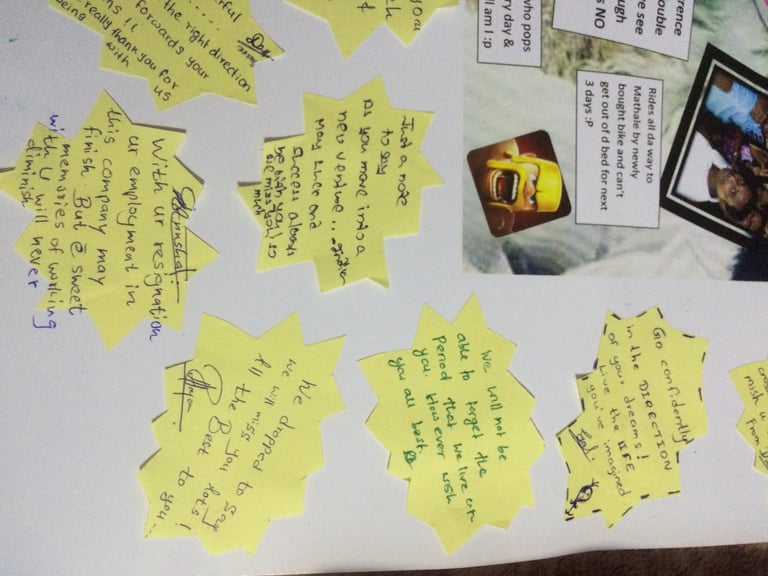 erful
the right direction
forwards your
!! really thank you for
being with us
you
who pops
ry day &
ll am I :p
erence
ouble
re see
ugh
s NO
Rides all da way to
Mathale by newly
bought bike and can't
get out of d bed for next
3 days :P
Just a note
to say
As you move into a
new venture..
May luck and
success always
be with you!
we miss you so
much
With ur resignation
ur employment in
this company may
finish. But ē sweet
memories of working
with U will never
diminish
We dropped to say
we will miss you lots!
All the Best to you...
We will not be
able to forget the
period that we live with
you. However wish
you all best.
Go confidently
in the DIRECTION
of your dreams!
Live the LIFE
you've imagined
miss u
From